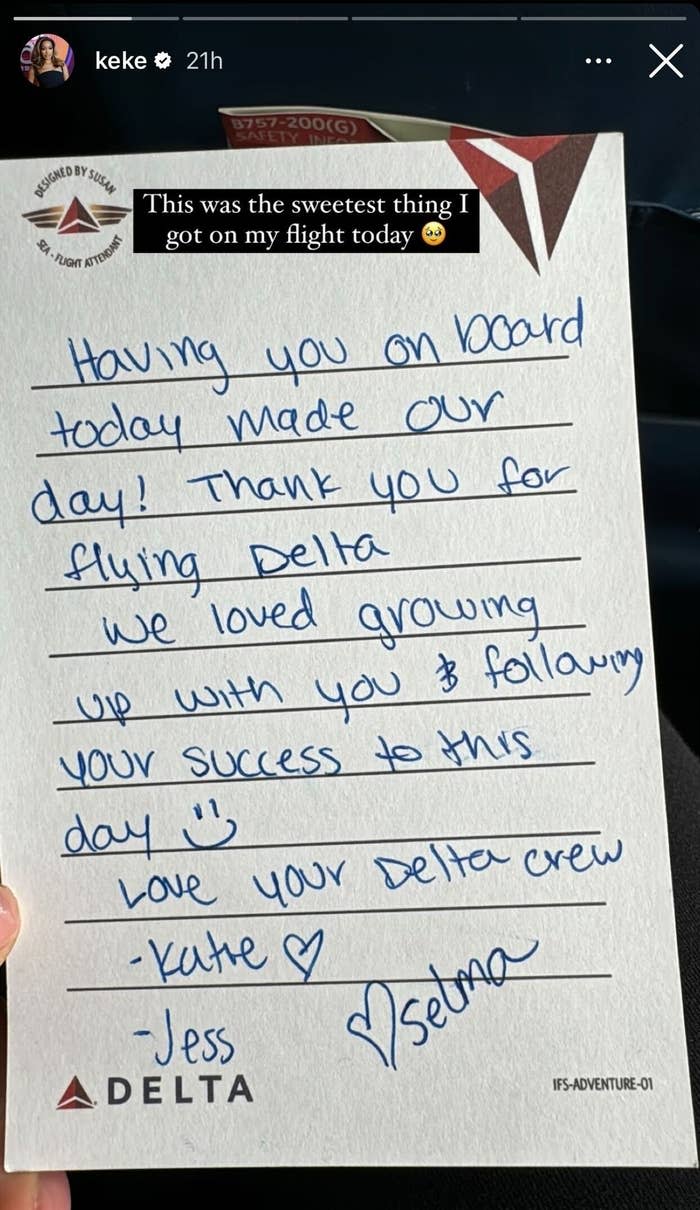 keke 21h
B757-200(G)
SAFETY
DESIGNED BY SUSAN
SEA - FLIGHT ATTENDANT
This was the sweetest thing I
got on my flight today 🥹
Having you on board
today made our
day! Thank you for
flying Delta
we loved growing
up with you & following
your success to this
day :)
Love your Delta crew
-Katie ♡
-Jess
♡ Selma
DELTA
IFS-ADVENTURE-01